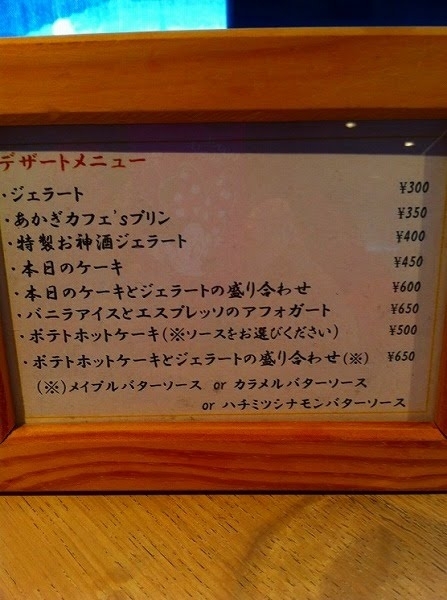 デザートメニュー
・ジェラート ¥300
・あかぎカフェ'sプリン ¥350
・特製お神酒ジェラート ¥400
・本日のケーキ ¥450
・本日のケーキとジェラートの盛り合わせ ¥600
・バニラアイスとエスプレッソのアフォガート ¥650
・ポテトホットケーキ(※ソースをお選びください) ¥500
・ポテトホットケーキとジェラートの盛り合わせ(※) ¥650
(※)メイプルバターソース or カラメルバターソース
or ハチミツシナモンバターソース